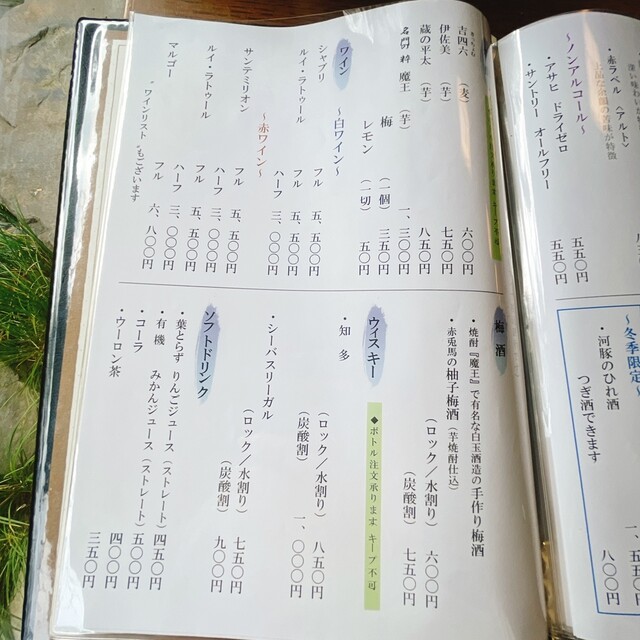 ・赤ラベル 〈アルト〉
～ノンアルコール～
・アサヒ ドライゼロ 五五〇円
・サントリー オールフリー 五五〇円
～冬季限定～
・河豚のひれ酒
つぎ酒できます 八〇〇円
キープ不可
吉四六 (麦) 六〇〇円
伊佐美 (芋) 七五〇円
蔵の平太 (芋) 八五〇円
名門の粋 魔王 (芋) 一、三〇〇円
梅 (一個) 三五〇円
レモン (一切) 五〇円
ワイン
～白ワイン～
シャブリ フル 五、五〇〇円
ルイ・ラトゥール フル 五、五〇〇円
ハーフ 三、〇〇〇円
～赤ワイン～
サンテミリオン フル 五、五〇〇円
ハーフ 三、〇〇〇円
ルイ・ラトゥール フル 五、五〇〇円
ハーフ 三、〇〇〇円
マルゴー フル 六、八〇〇円
〝ワインリスト〟もございます
梅酒
・焼酎『魔王』で有名な白玉酒造の手作り梅酒
・赤兎馬の柚子梅酒 (芋焼酎仕込)
(ロック／水割り) 六〇〇円
(炭酸割) 七五〇円
ウイスキー
◆ボトル注文承ります キープ不可
・知多
(ロック／水割り) 八五〇円
(炭酸割) 一、〇〇〇円
・シーバスリーガル
(ロック／水割り) 七五〇円
(炭酸割) 九〇〇円
ソフトドリンク
・葉とらず りんごジュース (ストレート) 四五〇円
・有機 みかんジュース (ストレート) 五〇〇円
・コーラ 四〇〇円
・ウーロン茶 三五〇円